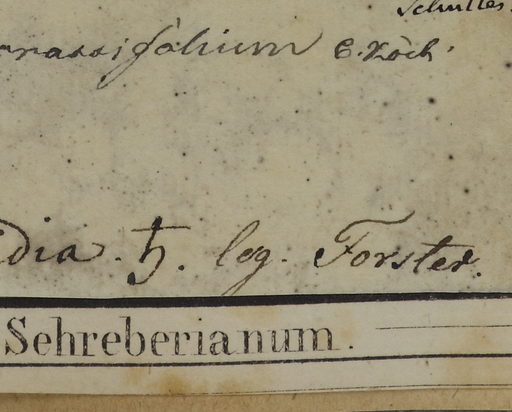 Schultes.
crassifolium C. Koch.
dia. ♄. leg. Forster.
Schreberianum.